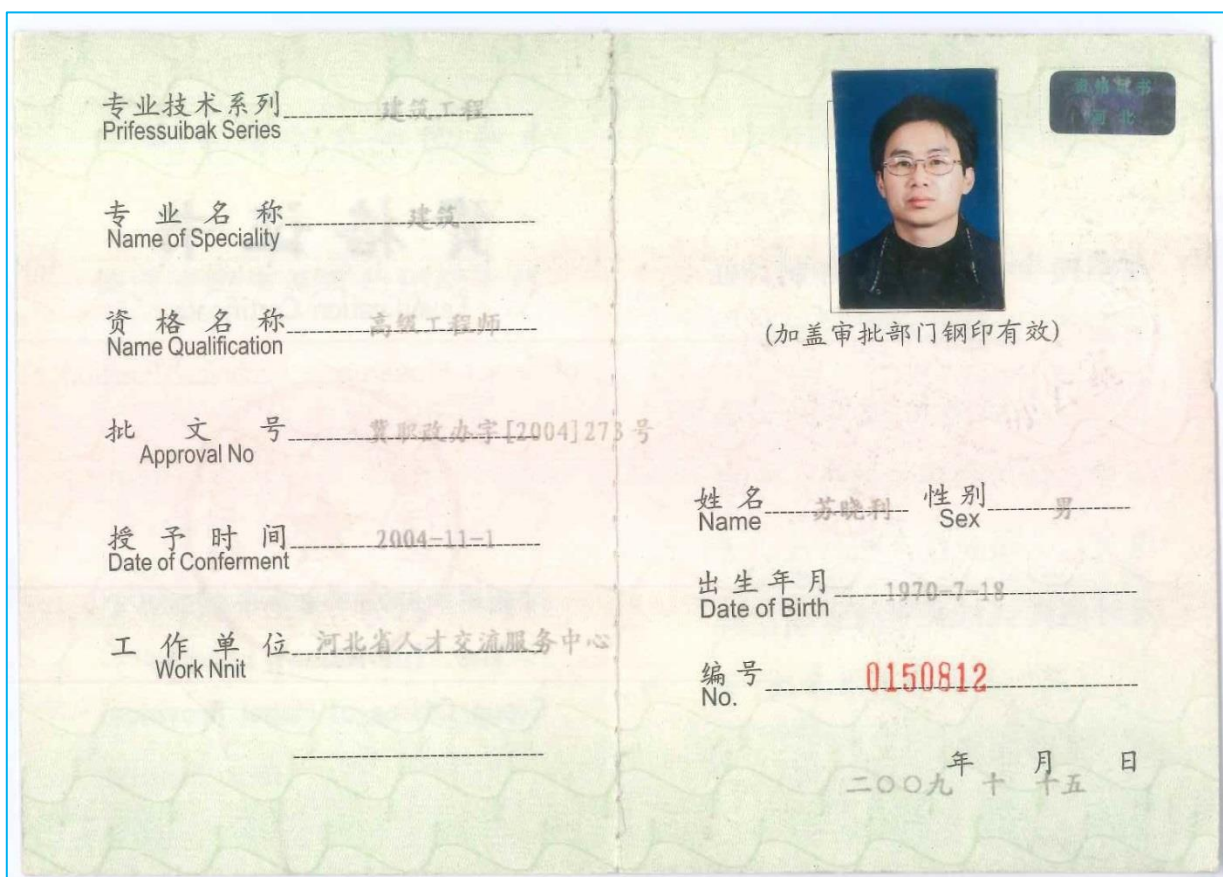 专业技术系列 建筑工程
Prifessuibak Series
专业名称 建筑
Name of Speciality
资格名称 高级工程师
Name Qualification
批文号 冀职改办字[2004]273号
Approval No
授予时间 2004-11-1
Date of Conferment
工作单位 河北省人才交流服务中心
Work Nnit
资格证书
河北
(加盖审批部门钢印有效)
姓名 苏晓利 性别 男
Name Sex
出生年月 1970-7-18
Date of Birth
编号 0150812
No.
年 月 日
二〇〇九 十 十五